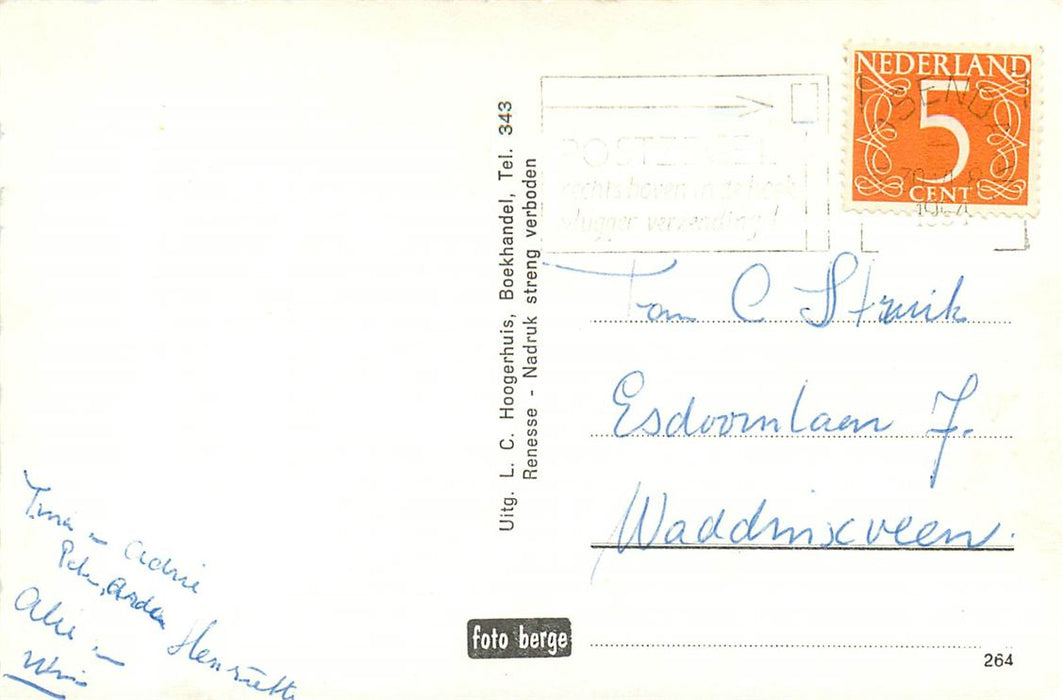 NEDERLAND
5
CENT
1964
POSTZEGEL
rechts boven in de hoek
vlugger verzending!
Uitg. L. C. Hoogerhuis, Boekhandel, Tel. 343
Renesse - Nadruk streng verboden
Fam C Struik
Esdoornlaan 7.
Waddinxveen.
Tina - Adrie
Henriette
Alie -
Wim
foto berge
264